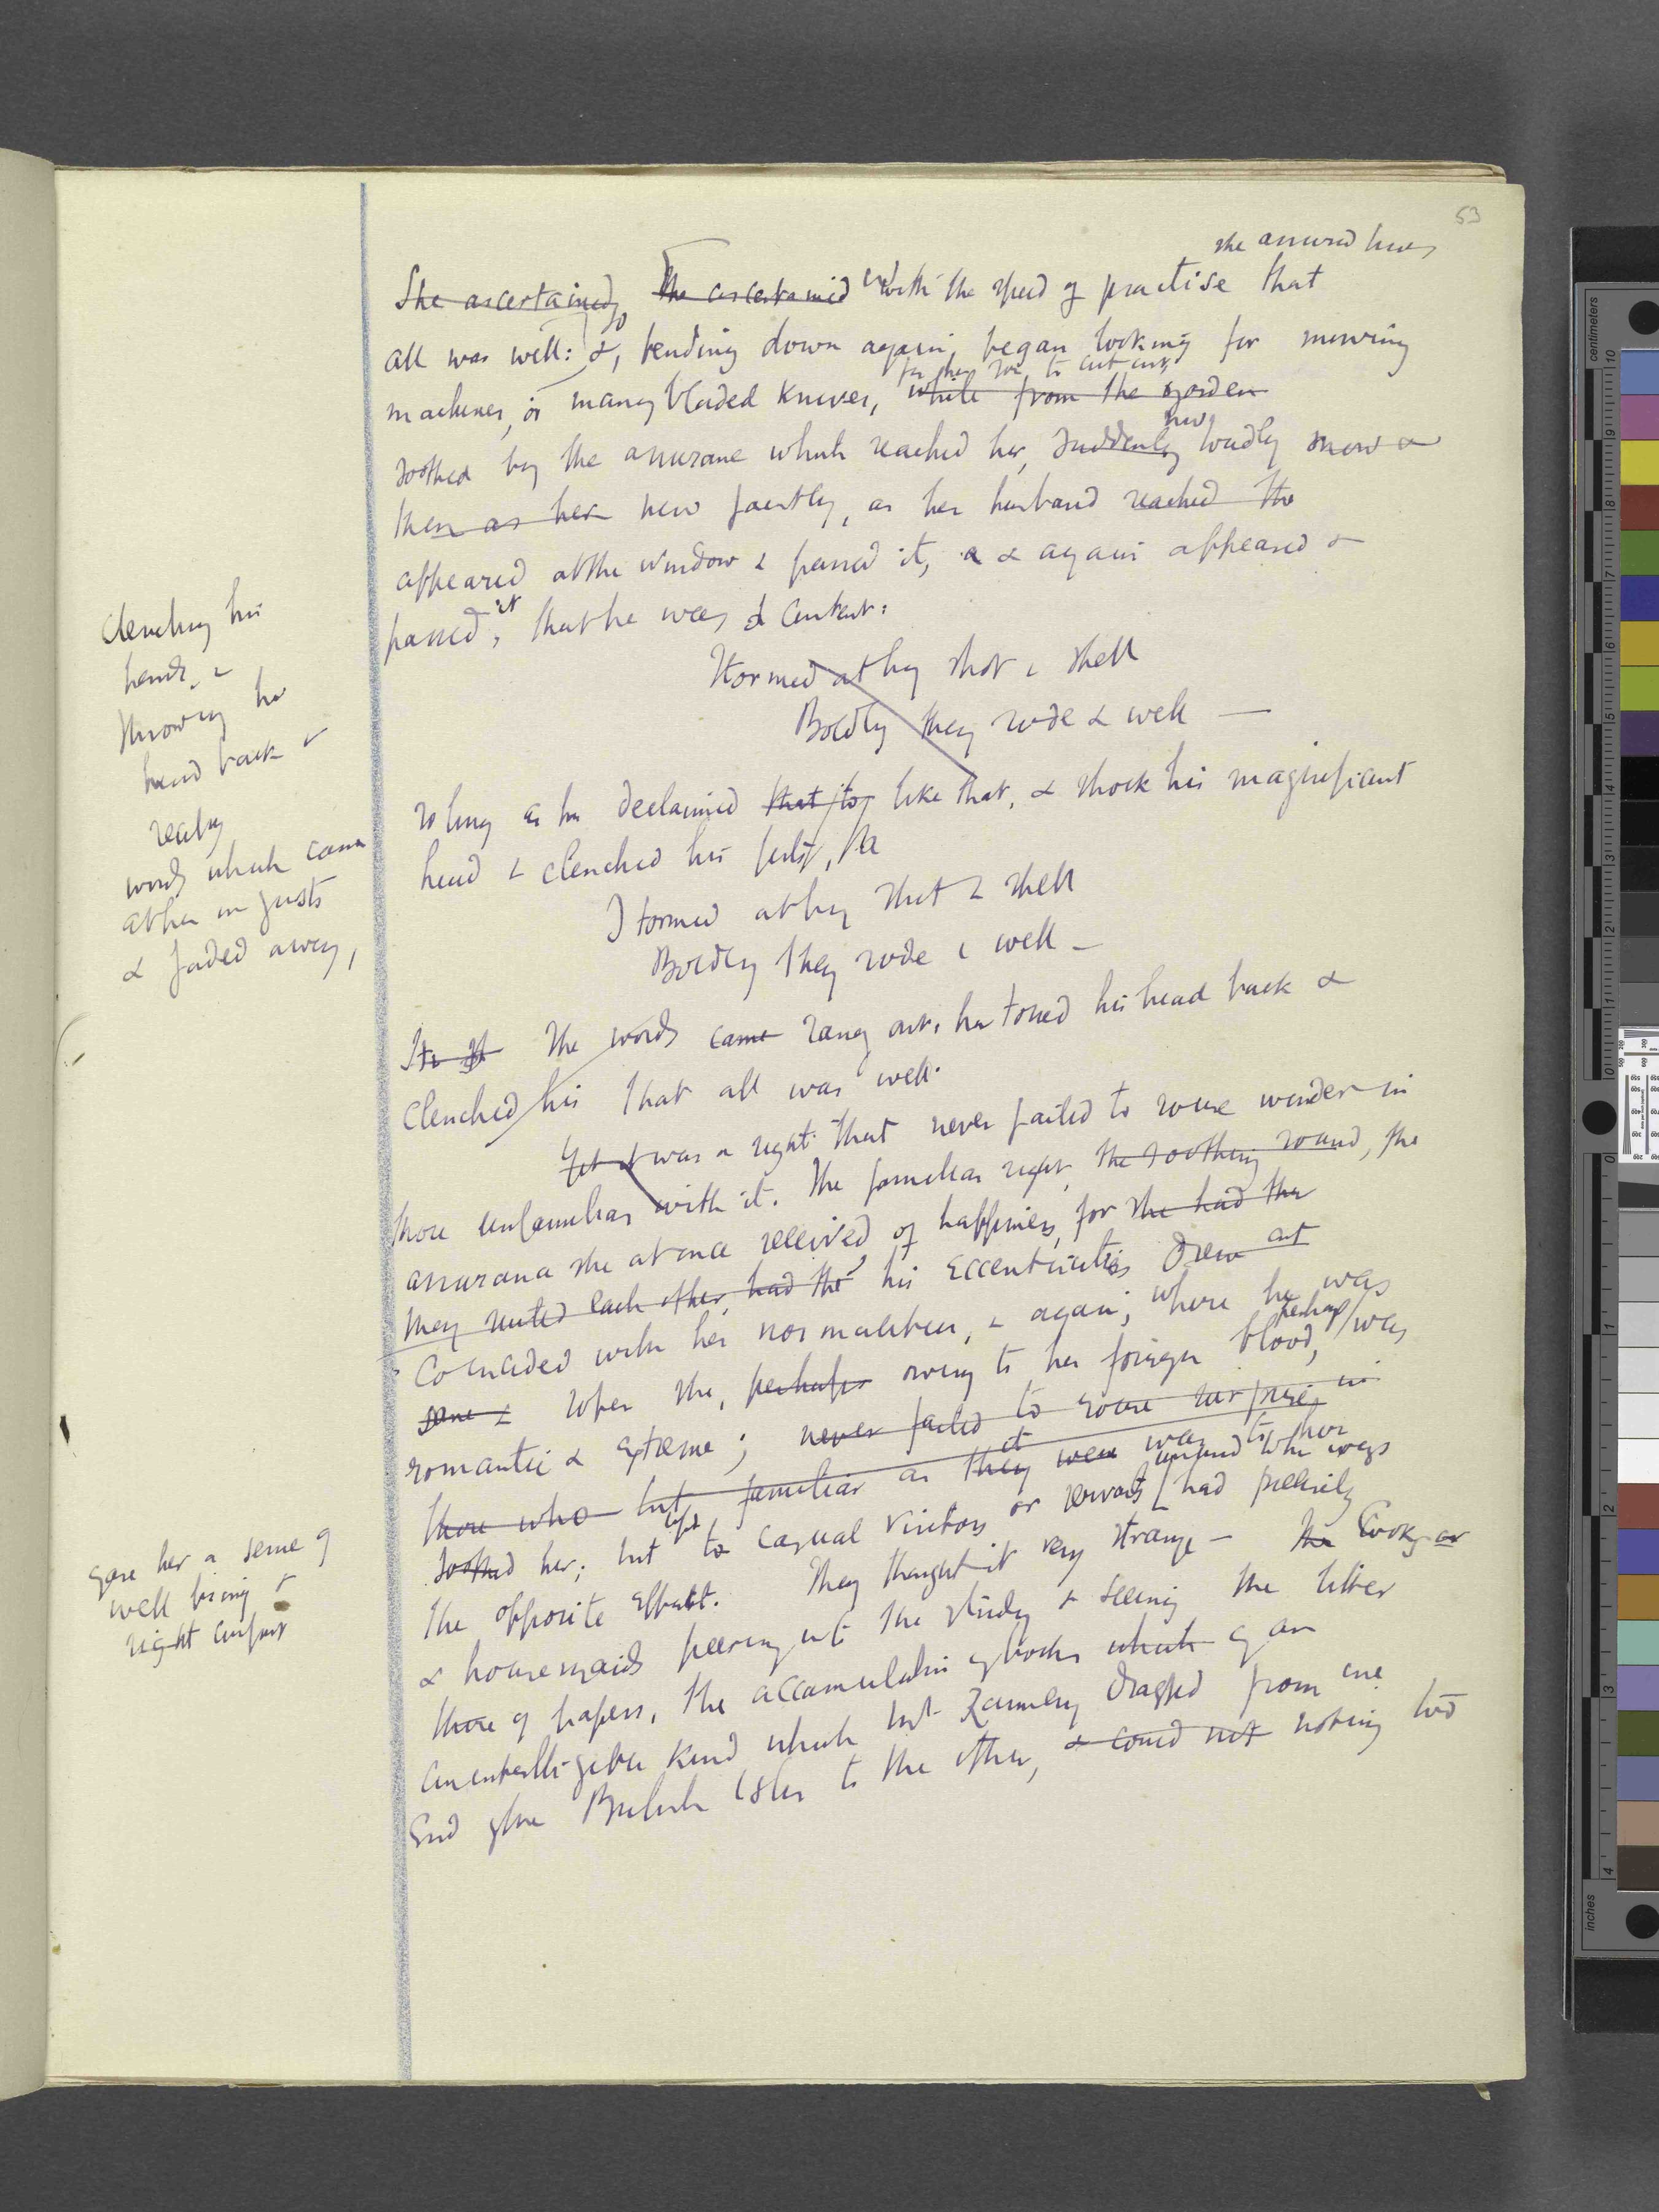 53
she assured herself
She ascertained, She ascertained with the speed of practise that
all was well: so &, bending down again, began looking for mowing
for her son to cut out
machines, or many bladed knives, while from the garden
now
soothed by the assurance which reached her, suddenly loudly now &
then as her now faintly, as her husband reached the
appeared at the window & passed it, & & again appeared &
passed it, that he was content:
Stormed at by shot & shell
Boldly they rode & well —
so long as he declaimed that, to, like that, & shook his magnificent
head & clenched his fist,
Stormed at by shot & shell
Boldly they rode & well —
The words came rang out, he tossed his head back &
clenched his that all was well.
Yet it was a sight that never failed to rouse wonder in
those unfamiliar with it. The familiar sight, the soothing sound, the
assurance she at once received of happiness, for she had the
they suited each other, had the his eccentricities drew out
coincided with her normalities, & again, where he was
sane & sober she, perhaps owing to her foreign blood, perhaps was
romantic & extreme; never failed to rouse surprise in
those who but familiar as they were it was to her
soothed her; but to casual visitors or servants unused to the ways had precisely
the opposite effect. They thought it very strange — The Cooks or
& housemaids peering into the study & seeing the litter
there of papers, the accumulation of books which of an
unintelligible kind which Mr Ramsay dragged from one
end of the British Isles to the other, & could not noting
Clenching his
hands, &
throwing his
head back &
words which came
at her in gusts
& faded away,
gave her a sense of
well being &
right comfort